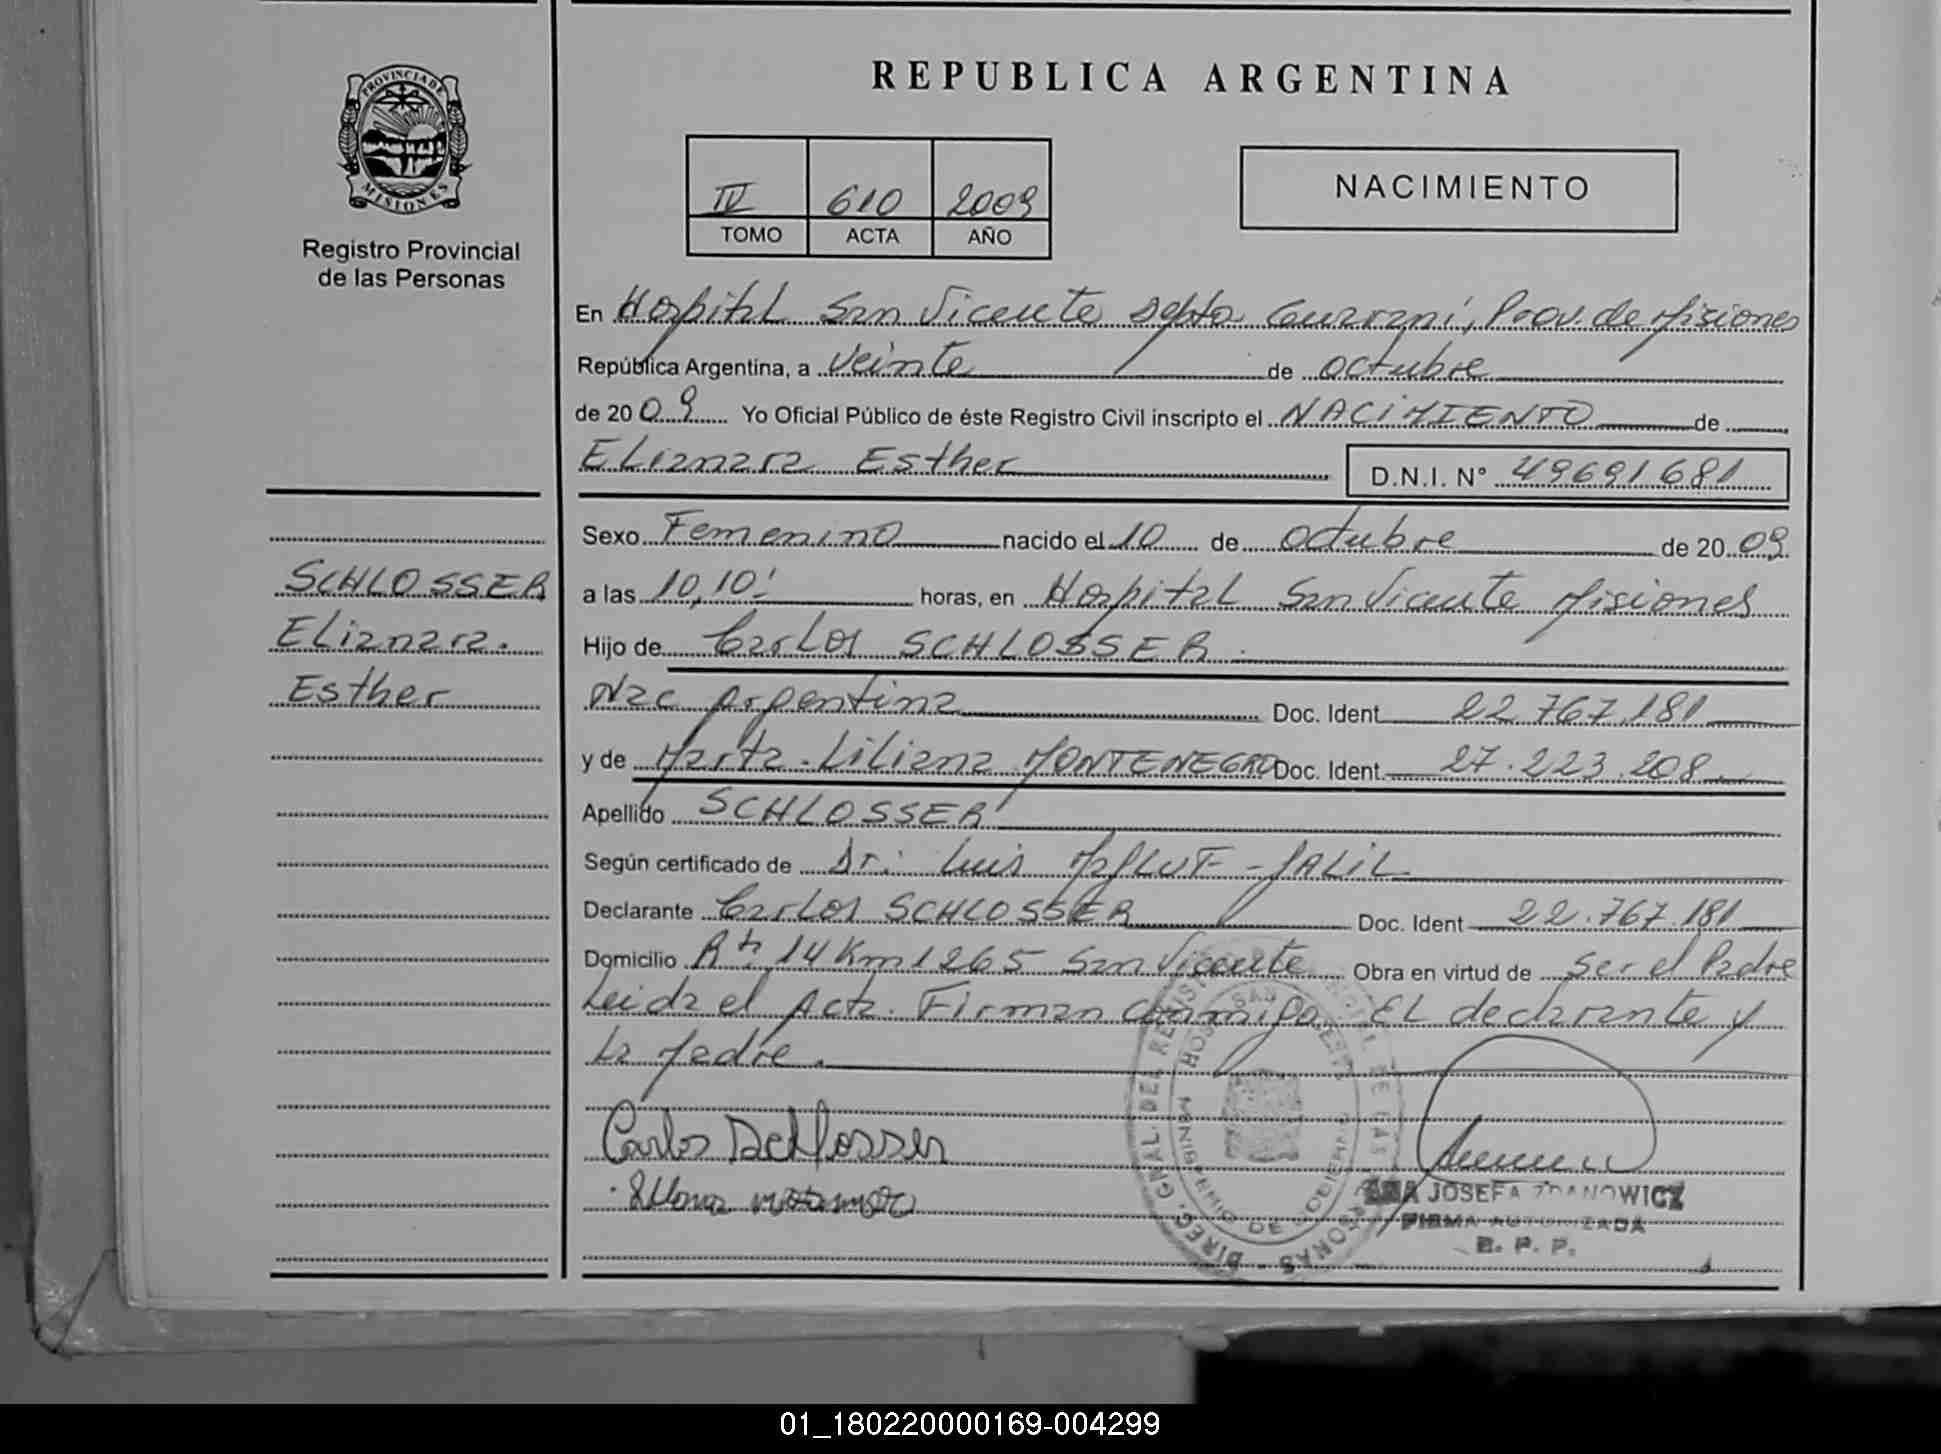 PROVINCIA DE
MISIONES
Registro Provincial
de las Personas
REPUBLICA ARGENTINA
IV 610 2009
TOMO ACTA AÑO
NACIMIENTO
En Hospital San Vicente Dpto Guaraní, Prov. de Misiones
República Argentina, a veinte de octubre
de 2009 Yo Oficial Público de éste Registro Civil inscripto el NACIMIENTO de
Elianara Esther D.N.I. N° 49691681
Sexo Femenino nacido el 10 de octubre de 2009
a las 10,10' horas, en Hospital San Vicente Misiones
Hijo de Carlos SCHLOSSER.
Nac Argentina Doc. Ident 22.767.181
y de Marta. Liliana MONTENEGRO Doc. Ident. 27.223.208
Apellido SCHLOSSER
Según certificado de Dr: Luis JALIL
Declarante Carlos SCHLOSSER Doc. Ident 22.767.181
Domicilio Rta 14 Km 1265 San Vicente Obra en virtud de ser el Padre
Leida el Acta. Firman conmigo EL declarante y
La Madre.
SCHLOSSER
Elianara.
Esther
Carlos Schlosser
DIREC. GRAL. DEL REGIST DE LAS PERSONAS
HOSP SAN VICENTE
MINISTERIO DE GOBIERNO
ANA JOSEFA ZDANOWICZ
FIRMA AUTORIZADA
R. P. P.
01_180220000169-004299